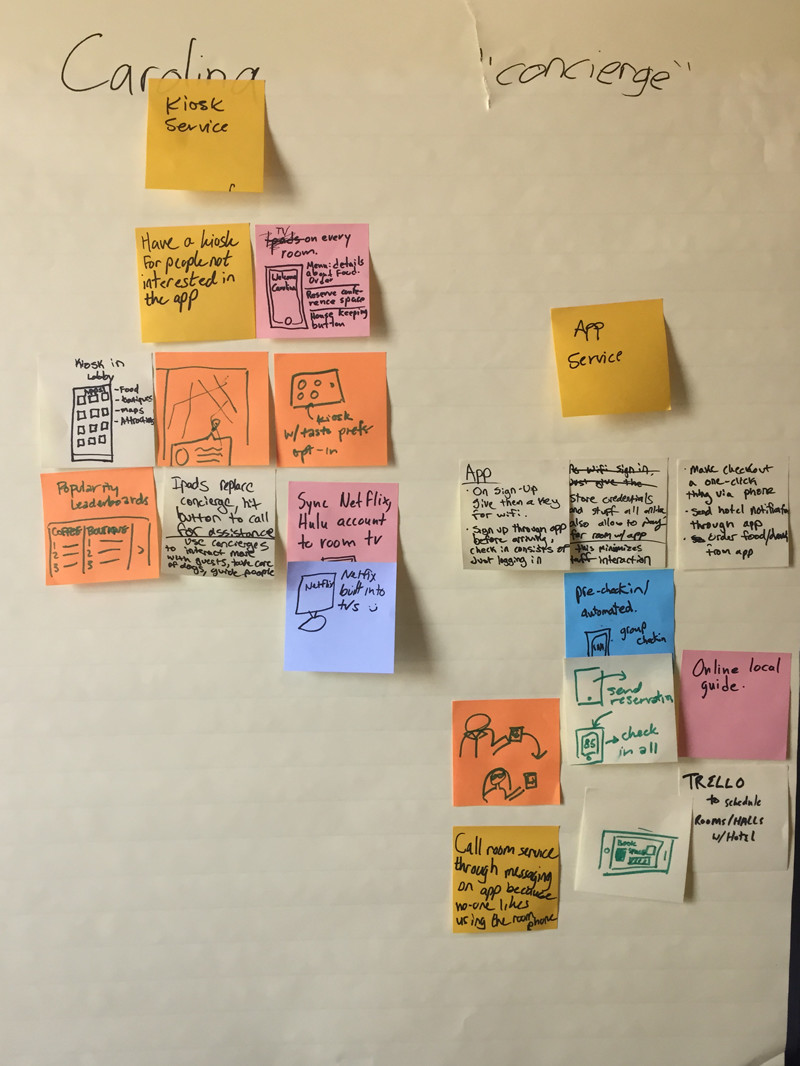 Carolina
"concierge"
Kiosk
Service
Have a kiosk
For people not
interested in
the app
TV
Ipads on every
room.
Welcome
Carolina
Menu: details
about Food.
Order
Reserve confe-
rence space
House keeping
button
Kiosk in
Lobby
- Food
- boutiques
- maps
- Attractions
kiosk
w/taste prefs
opt-in
Popularity
Leaderboards
COFFEE BOUTIQUES
1 1
2 2
3 3
Ipods replace
concierge, hit
button to call
for assistance
use concierges
to interact more
with guests, take care
of dogs, guide people
Sync Netflix,
Hulu account
to room tv
Netflix
Netflix
built into
tvs
App
Service
App
· On Sign-Up
give then a key
for wifi.
· Sign up through app
before arriving,
check in consists of
just logging in
Wifi sign in,
Just give the
Store credentials
and stuff all
also allow to pay
for room w/ app
this minimizes
staff interaction
· Make checkout
a one-click
thing via phone
· Send hotel notification
through app
· Order food/
from app
pre-checkin/
automated.
group checkin
send
reservation
85
check
in all
Online local
guide.
TRELLO
to schedule
ROOMS/HALLS
w/Hotel
Book
Call room service
through messaging
on app because
no-one likes
using the room
phone